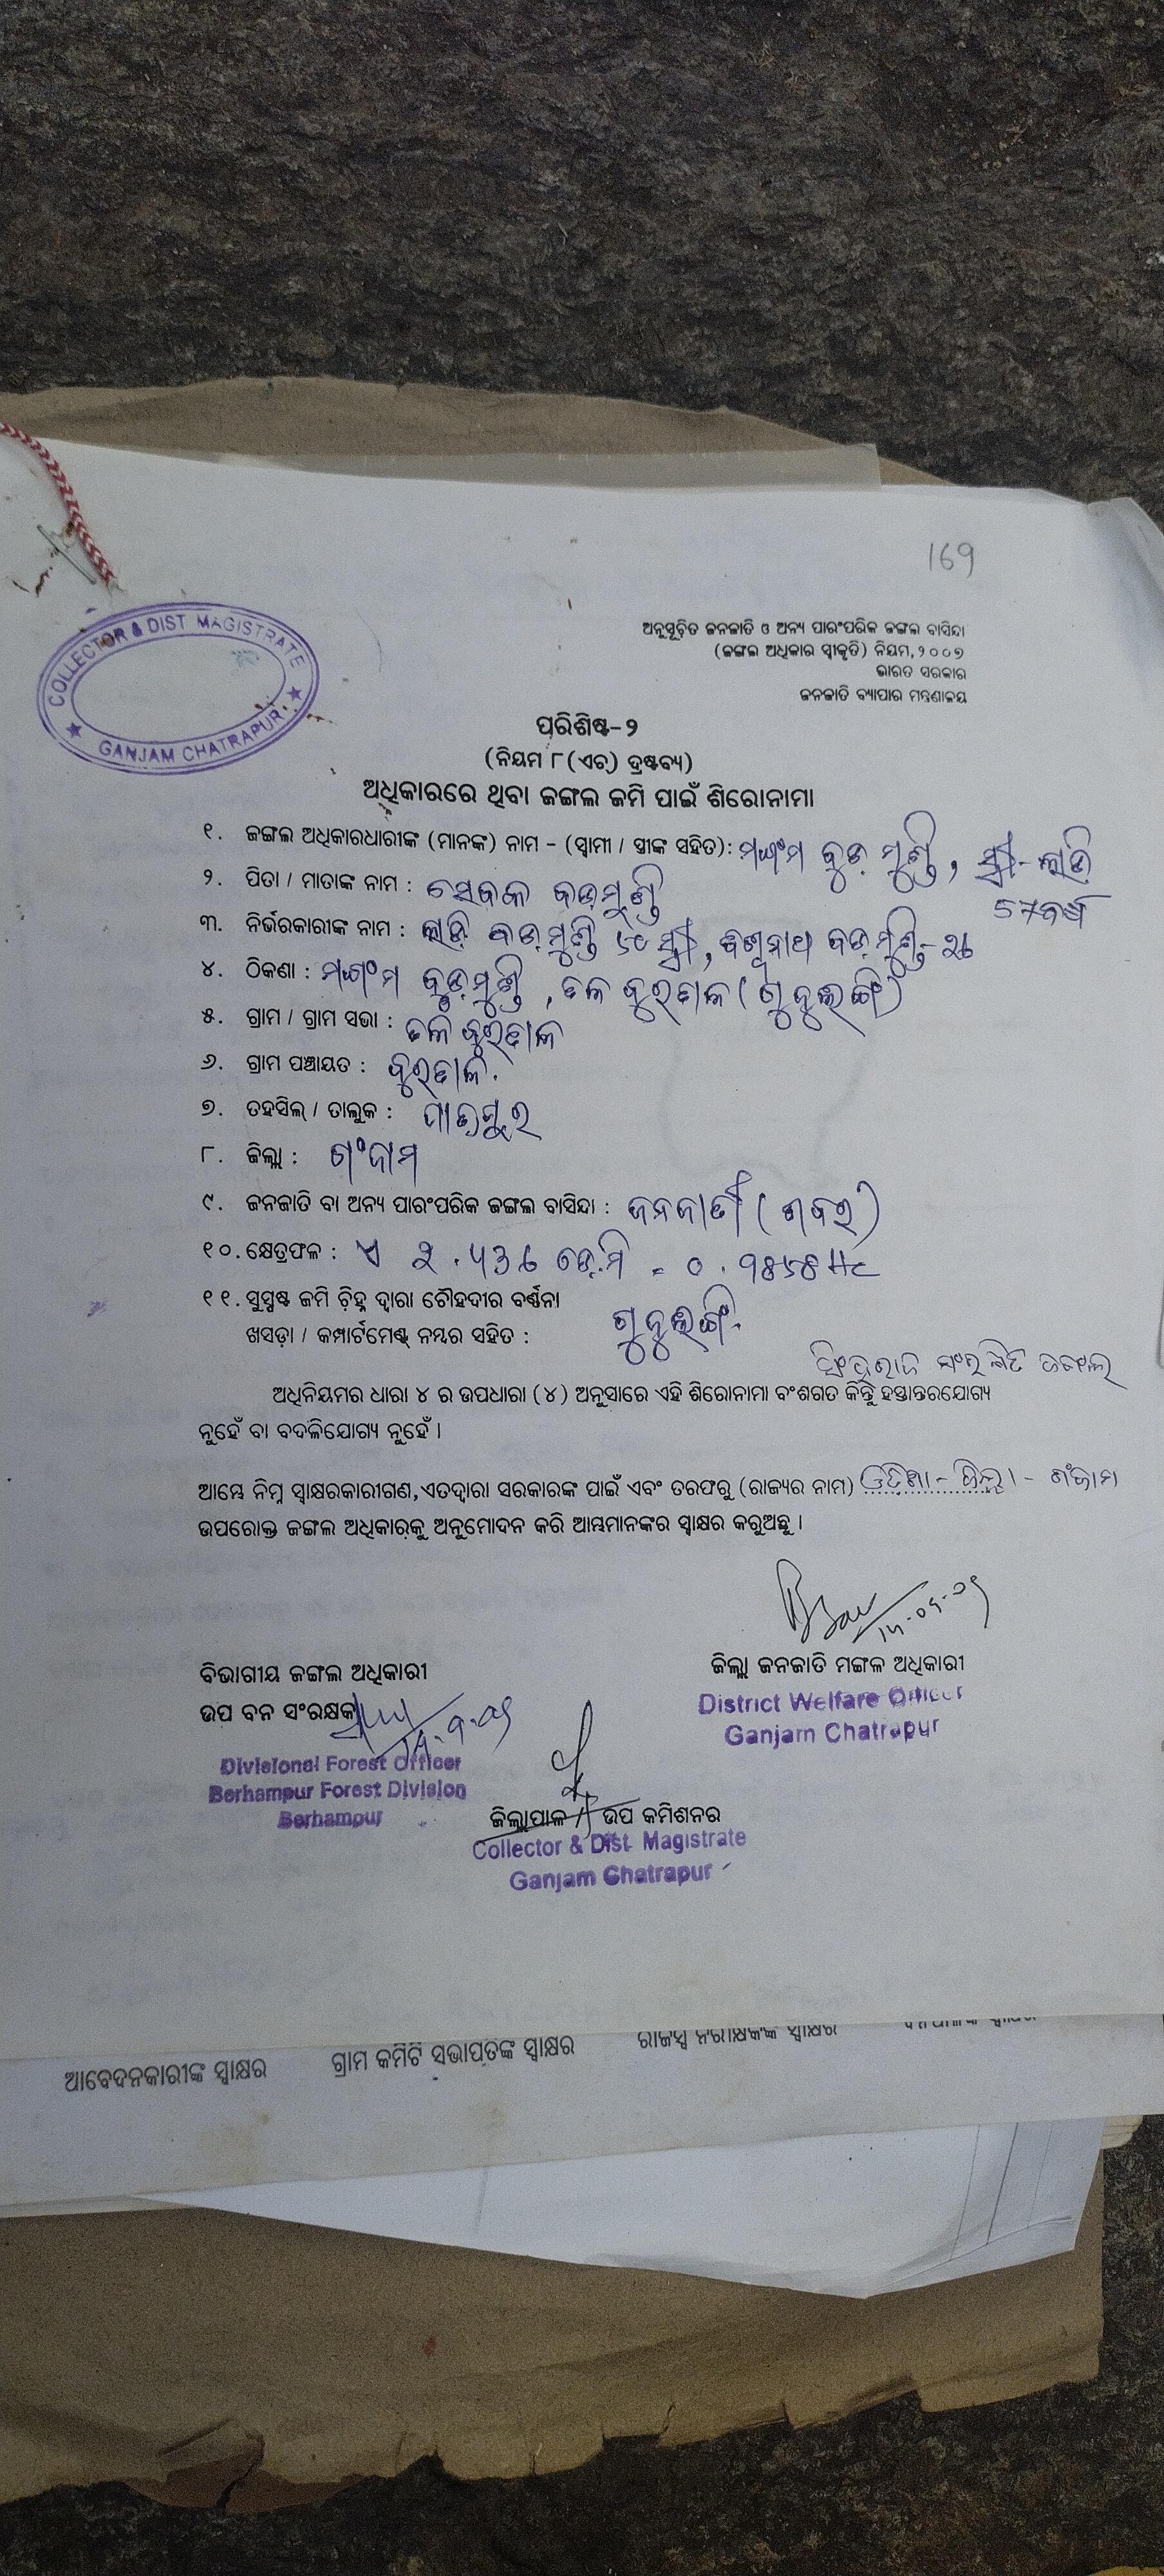 169
COLLECTOR & DIST MAGISTRATE
GANJAM CHATRAPUR
ଅନୁସୂଚିତ ଜନଜାତି ଓ ଅନ୍ୟ ପାରଂପରିକ ଜଙ୍ଗଲ ବାସିନ୍ଦା
(ଜଙ୍ଗଲ ଅଧିକାର ସ୍ୱୀକୃତି) ନିୟମ,୨୦୦୭
ଭାରତ ସରକାର
ଜନଜାତି ବ୍ୟାପାର ମନ୍ତ୍ରଣାଳୟ
ପରିଶିଷ୍ଟ-୨
(ନିୟମ ୮(ଏଚ୍) ଦ୍ରଷ୍ଟବ୍ୟ)
ଅଧିକାରରେ ଥିବା ଜଙ୍ଗଲ ଜମି ପାଇଁ ଶିରୋନାମା
୧. ଜଙ୍ଗଲ ଅଧିକାରଧାରୀଙ୍କ (ମାନଙ୍କ) ନାମ - (ସ୍ୱାମୀ / ସ୍ତ୍ରୀଙ୍କ ସହିତ): ମଙ୍ଗମ ବୁଡ଼ ମୁଣ୍ଡି, ସ୍ତ୍ରୀ- ଲାଡ଼ି
୨. ପିତା / ମାତାଙ୍କ ନାମ : ସେବକ ବଡ଼ମୁଣ୍ଡି
57ବର୍ଷ
୩. ନିର୍ଭରକାରୀଙ୍କ ନାମ : ଲାଡ଼ି ବଡ଼ମୁଣ୍ଡି ସ୍ତ୍ରୀ, ବଡ଼ମୁଣ୍ଡି-
୪. ଠିକଣା : ବୁଡ଼ମୁଣ୍ଡି, ତଳ ବୁରତାଳ (ଗୁନୁଲଙ୍ଗି)
୫. ଗ୍ରାମ / ଗ୍ରାମ ସଭା : ତଳ ବୁରତାଳ
୬. ଗ୍ରାମ ପଞ୍ଚାୟତ : ବୁରତାଳ.
୭. ତହସିଲ୍ / ତାଲୁକ : ପାତ୍ରପୁର
୮. ଜିଲ୍ଲା : ଗଂଜାମ
୯. ଜନଜାତି ବା ଅନ୍ୟ ପାରଂପରିକ ଜଙ୍ଗଲ ବାସିନ୍ଦା : ଜନଜାତି (ଶବର)
୧୦. କ୍ଷେତ୍ରଫଳ : ଏ ଡେ.ମି
୧୧. ସୁସ୍ପଷ୍ଟ ଜମି ଚିହ୍ନ ଦ୍ୱାରା ଚୌହଦୀର ବର୍ଣ୍ଣନା
ଖସଡ଼ା / କମ୍ପାର୍ଟମେଣ୍ଟ୍ ନମ୍ବର ସହିତ : ଗୁନୁଲଙ୍ଗି.
ସିଂହରାଜ ସଂରକ୍ଷିତ ଜଙ୍ଗଲ
ଅଧିନିୟମର ଧାରା ୪ ର ଉପଧାରା (୪) ଅନୁସାରେ ଏହି ଶିରୋନାମା ବଂଶଗତ କିନ୍ତୁ ହସ୍ତାନ୍ତରଯୋଗ୍ୟ
ନୁହେଁ ବା ବଦଳିଯୋଗ୍ୟ ନୁହେଁ ।
ଆମ୍ଭେ ନିମ୍ନ ସ୍ୱାକ୍ଷରକାରୀଗଣ,ଏତଦ୍ୱାରା ସରକାରଙ୍କ ପାଇଁ ଏବଂ ତରଫରୁ (ରାଜ୍ୟର ନାମ) ଓଡ଼ିଶା - ଜିଲ୍ଲା - ଗଂଜାମ
ଉପରୋକ୍ତ ଜଙ୍ଗଲ ଅଧିକାରକୁ ଅନୁମୋଦନ କରି ଆମ୍ଭମାନଙ୍କର ସ୍ୱାକ୍ଷର କରୁଅଛୁ ।
ଜିଲ୍ଲା ଜନଜାତି ମଙ୍ଗଳ ଅଧିକାରୀ
District Welfare Officer
Ganjam Chatrapur
ବିଭାଗୀୟ ଜଙ୍ଗଲ ଅଧିକାରୀ
ଉପ ବନ ସଂରକ୍ଷକ
Divisional Forest Officer
Berhampur Forest Division
Berhampur
ଜିଲ୍ଲାପାଳ / ଉପ କମିଶନର
Collector & Dist. Magistrate
Ganjam Chatrapur
ଆବେଦନକାରୀଙ୍କ ସ୍ୱାକ୍ଷର ଗ୍ରାମ କମିଟି ସଭାପତିଙ୍କ ସ୍ୱାକ୍ଷର ରାଜସ୍ୱ ନିରୀକ୍ଷକଙ୍କ ସ୍ୱାକ୍ଷର